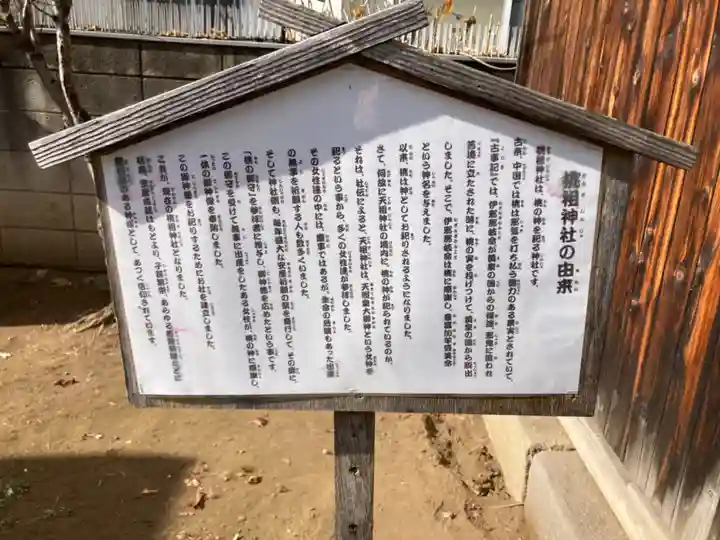 桃祖神社の由来
桃祖神社は、桃の神を祀る神社です。
古来、中国では桃は悪霊をうち払う霊力のある果実とされていて、
『古事記』では、伊邪那岐命が黄泉の国からの帰途、悪鬼に追われ
苦境に立たされた時に、桃の実を投げつけて、黄泉の国から脱出
しました。そこで、伊邪那岐命は桃に感謝し、意富加牟豆美命
という神名を与えました。
以来、桃は神としてお祀りされるようになりました。
さて、何故に天祖神社の境内に、桃の神が祀られているのか、
それは、社伝によると、天祖神社は、天照皇大御神という女神を
祀るという事から、多くの女性達が参拝しました。
その女性達の中には、慶事ではあるが、生命の危険もあった出産
の無事を祈願する人も数多くいました。
そして神社側も、毎年盛大な安産祈願の祭を斎行して、その際に、
「桃の御守」を参拝者に授与し、御神徳を広めたという事です。
この御守を受けて無事に出産をしたある女性が、桃の神に感謝し、
一体の御神像を奉納しました。
この御神像をお祀りするためにお社を建立しました。
これが、現在の桃祖神社となりました。
桃は、
のある神様として、あつく信仰されています。